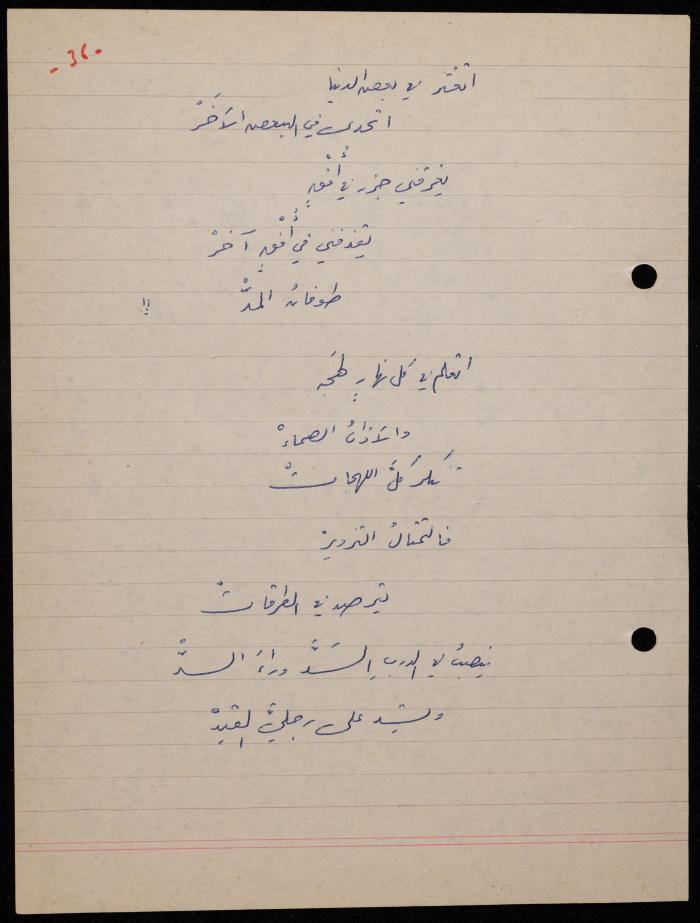 -٣٦-
اتعثر في بعض الدنيا
اتحدى في البعض الآخَرْ
يغرقني جزر في أُفْقٍ
يقذفني في أُفْقٍ آخرْ
طوفانُ المدّْ !!
اتعلم في كل نهارٍ لهجَه
والآذانُ الصماءْ
تنكر كلَّ اللهجاتْ
فالتمثالُ التزويرْ
يترصد في الطرقاتْ
ينصبُ لي الدربِ السَدَّ وراءَ السدّْ
ويشد على رجليَّ القيدْ